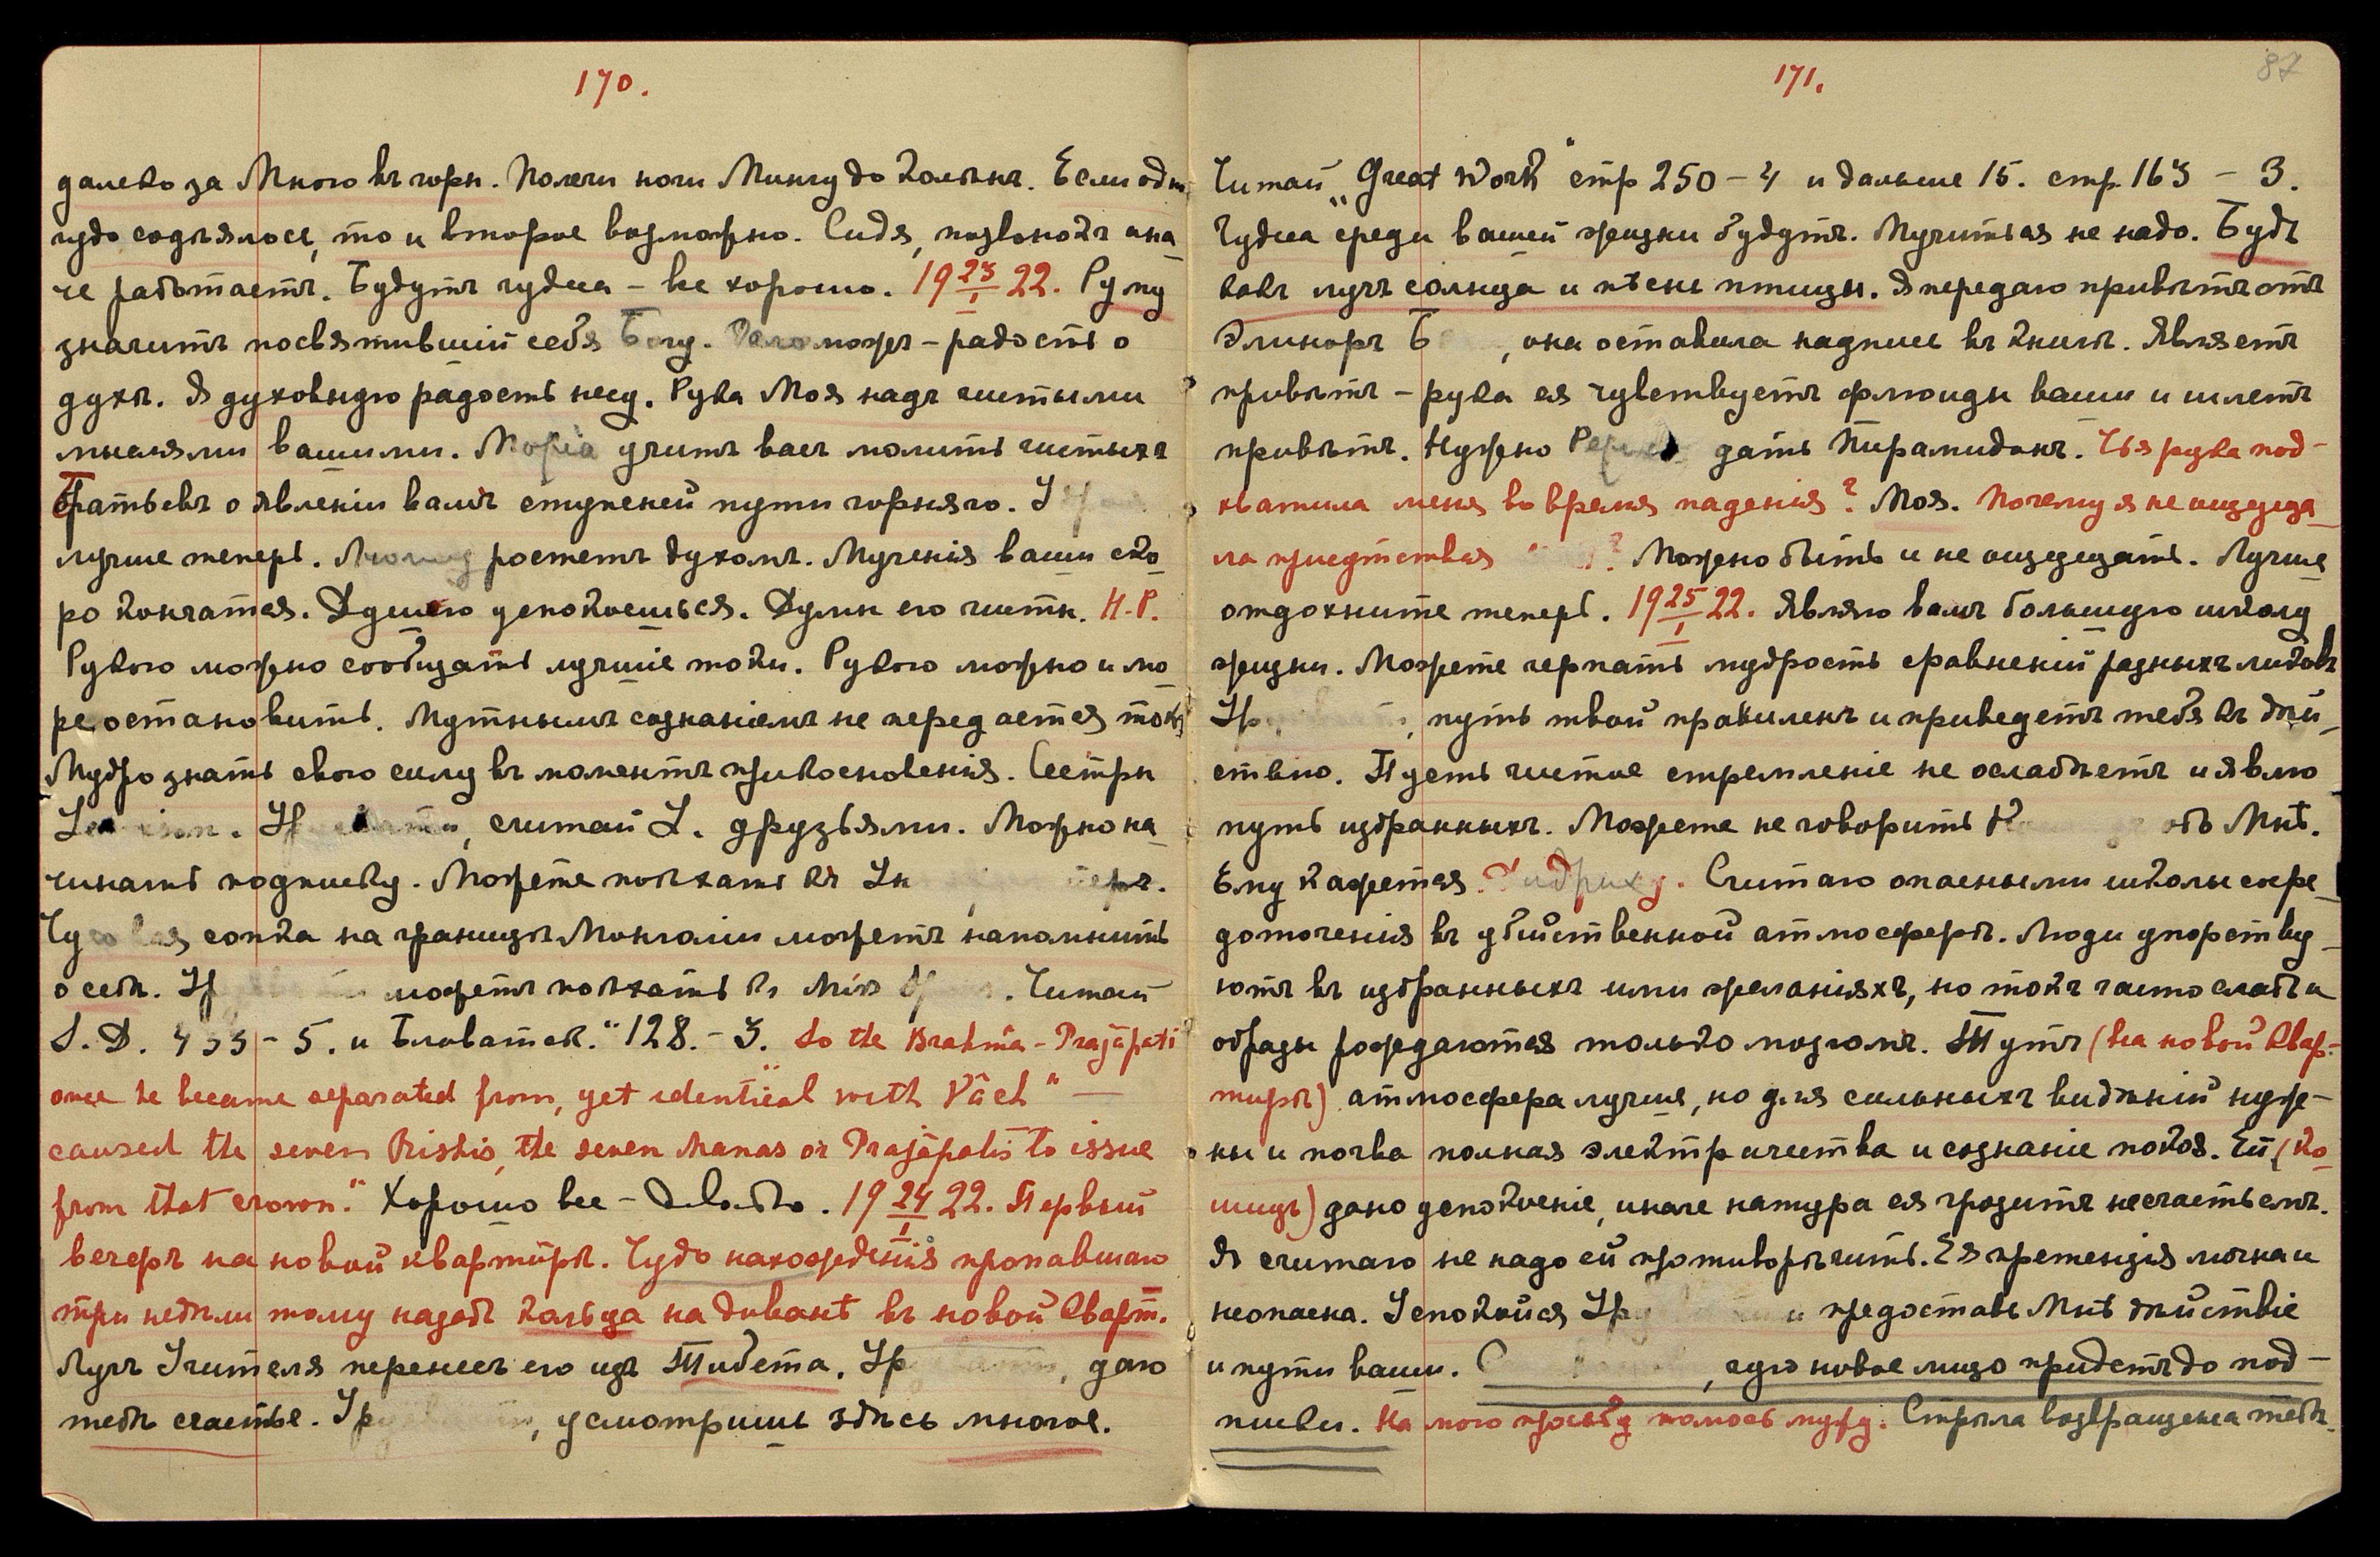 170.
далеко за Мною въ горы. Полечи ноги Мингу до колѣнъ. Если одно
чудо содѣялось, то и второе возможно. Сидя, позвонокъ ина_
че работаетъ. Будутъ чудеса – все хорошо. 19 23/I 22.
значитъ посвятившій себя Богу. – радость о
духѣ. Я духовную радость несу. Рука Моя надъ чистыми
мыслями вашими. Моріа учитъ васъ молить чистыхъ
Братьевъ о явленіи вамъ ступеней пути горняго.
лучше теперь. ростетъ духомъ. Мученія ваши ско_
ро кончатся. успокоишься. Думы его чисты. Н.Р.
Рукою можно сообщать лучшіе токи. Рукою можно и мо_
ре остановить. Мутнымъ сознаніемъ не передается токъ
Мудро знать свою силу въ моментъ прикосновенія. Сестры
, считай L. друзьями. Можно на_
чинать подписку. Можете поѣхать къ
сопка на границѣ Монголіи можетъ напомнить
о себѣ. можетъ поѣхать къ Miss . Читай
S. D. – 5. и Блаватск." 128. – 3. So the Brahmâ-Prajâpati
once he became separated from, yet identical with Vâch" —
caused the seven Rishis, the seven Manas or Prajâpatis to issue
from that crown." Хорошо все – . 19 24/I 22. Первый
вечеръ на новой квартирѣ. Чудо нахожденія пропавшаго
три недѣли тому назадъ кольца на диванѣ въ новой кварт.
Лучъ Учителя перенесъ его изъ Тибета. , даю
тебѣ счастье. , усмотришь здѣсь многое.
171.
87
Читай „Great Work" стр 250 – 4 и дальше 15. стр. 163 – 3.
Чудеса среди вашей жизни будутъ. Мучиться не надо. Будь
какъ лучъ солнца и пѣснь птицы. Я передаю привѣтъ отъ
Элиноръ Б , она оставила надпись въ книгѣ. Являетъ
привѣтъ – рука ея чувствуетъ флюиды ваши и шлетъ
привѣтъ. Нужно дать Пирамидонъ. Чья рука под-
хватила меня во время паденія? Моя. Почему я не ощуща_
ла присутствія ? Можно быть и не ощущать. Лучше
отдохните теперь. 19 25/I 22. Являю вамъ большую школу
жизни. Можете черпать мудрость сравненій разныхъ ликовъ
, путь твой правиленъ и приведетъ тебя къ дѣй_
ствію. Пусть чистое стремленіе не ослабѣетъ и явлю
путь избранныхъ. Можете не говорить объ Мнѣ.
Ему кажется. Считаю опасными школы сосре_
доточенія въ убійственной атмосферѣ. Люди упорству_
ютъ въ избранныхъ ими желаніяхъ, но токъ часто слабъ и
образы рождаются только мозгомъ. Тутъ (на новой квар-
тирѣ) атмосфера лучше, но для сильныхъ видѣній нуж-
ны и почва полная электричества и сознаніе покоя. Ей (ко_
шицъ) дано успокоеніе, иначе натура ея грозитъ несчастьемъ.
Я считаю не надо ей противорѣчить. Ея претензія мочна и
неопасна. Успокойся и предоставь Мнѣ дѣйствіе
и пути ваши. , чую новое лицо придетъ до под-
писки. На мою просьбу помочь мужу. Стрѣла возвращена тебѣ.